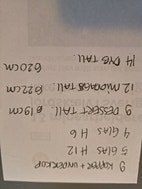 9 KOPPER + UNDERKOP
5 GLAS H 12
4 GLAS H 6
9 DESSERT TALL Ø19cm
12 MIDDAGSTALL Ø22cm
14 DYB TALL. Ø20cm